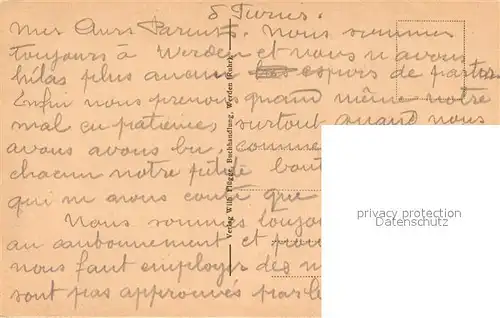 8 Furus.
Mes Chers Parents. Nous sommes
toujours à Werden et nous n'avons
hélas plus aucun espoirs de partir.
Enfin nous prenons quand même notre
mal en patience, surtout quand nous
avous avous bu, comme
chacun notre petite bout
qui n'avous couté que
Nous sommes toujou
au cantonnement et pour
nous faut employer des m
sont pas approuvés par le
Verlag Wilh. Flügge, Buchhandlung, Werden (Ruhr)
privacy protection
Datenschutz